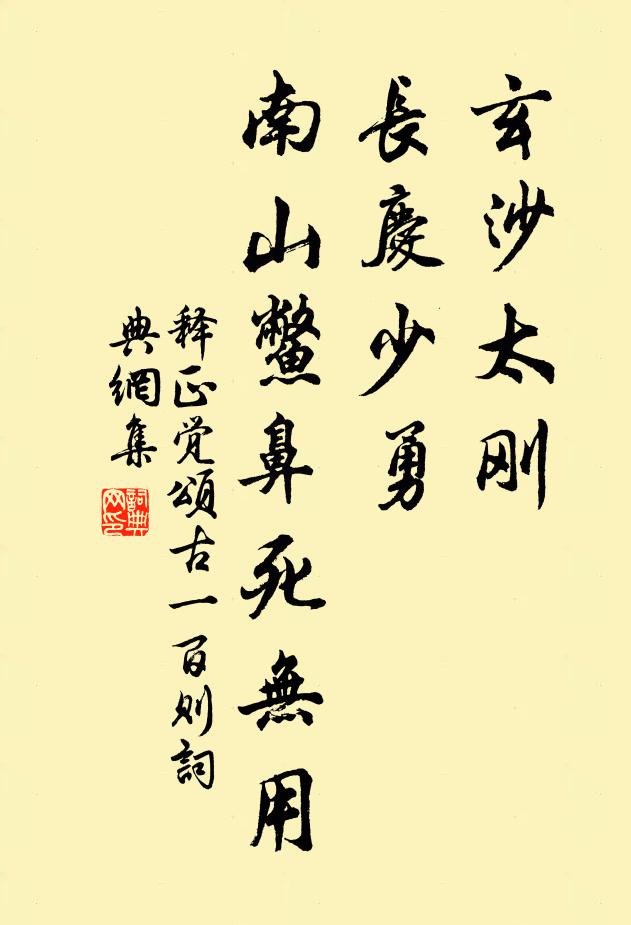 玄沙太刚
長慶少勇
南山鱉鼻死無用
释正觉頌古一百则詞
典網集
詞典
网印